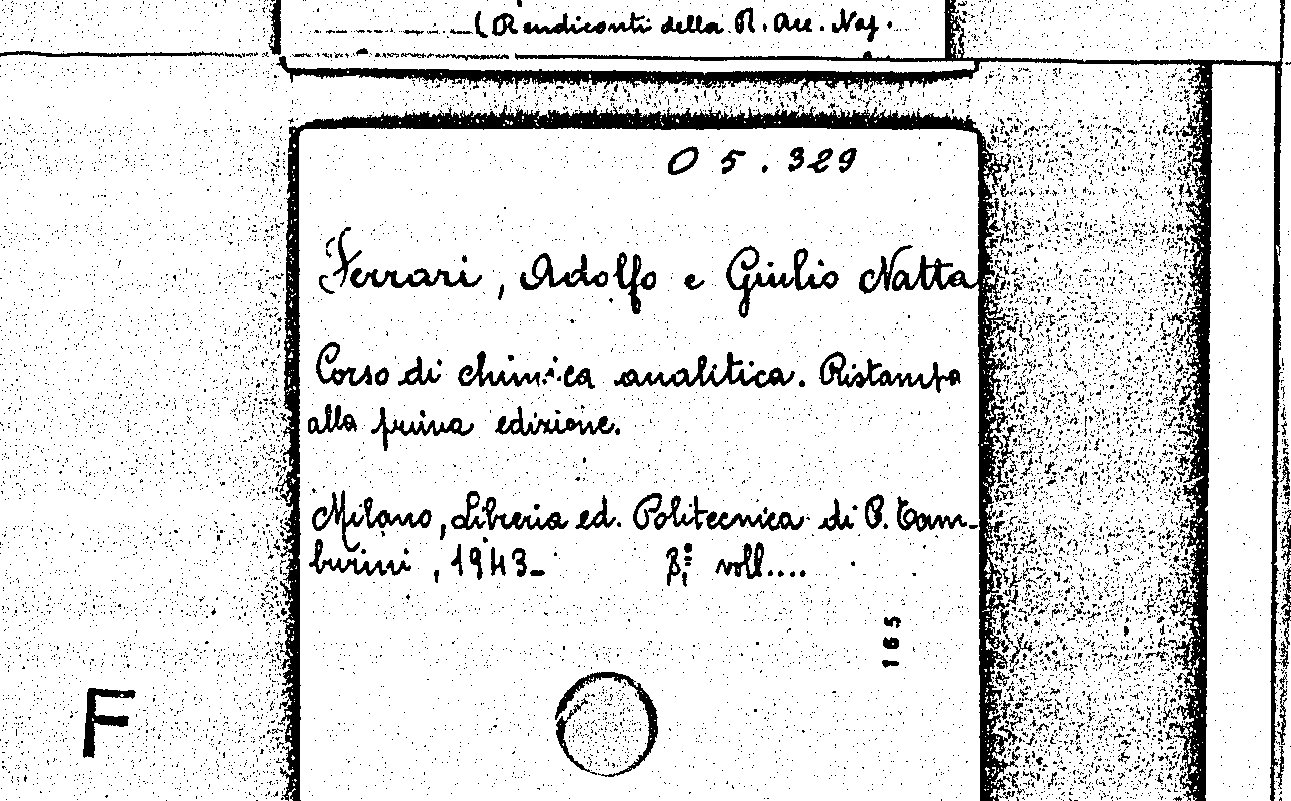 (Rendiconti della R. Acc. Naz.
O 5.329
Ferrari, Adolfo e Giulio Natta
Corso di chimica analitica. Ristampa
alla prima edizione.
Milano, Libreria ed. Politecnica di P. Tam-
burini, 1943- 8º voll....
165
F